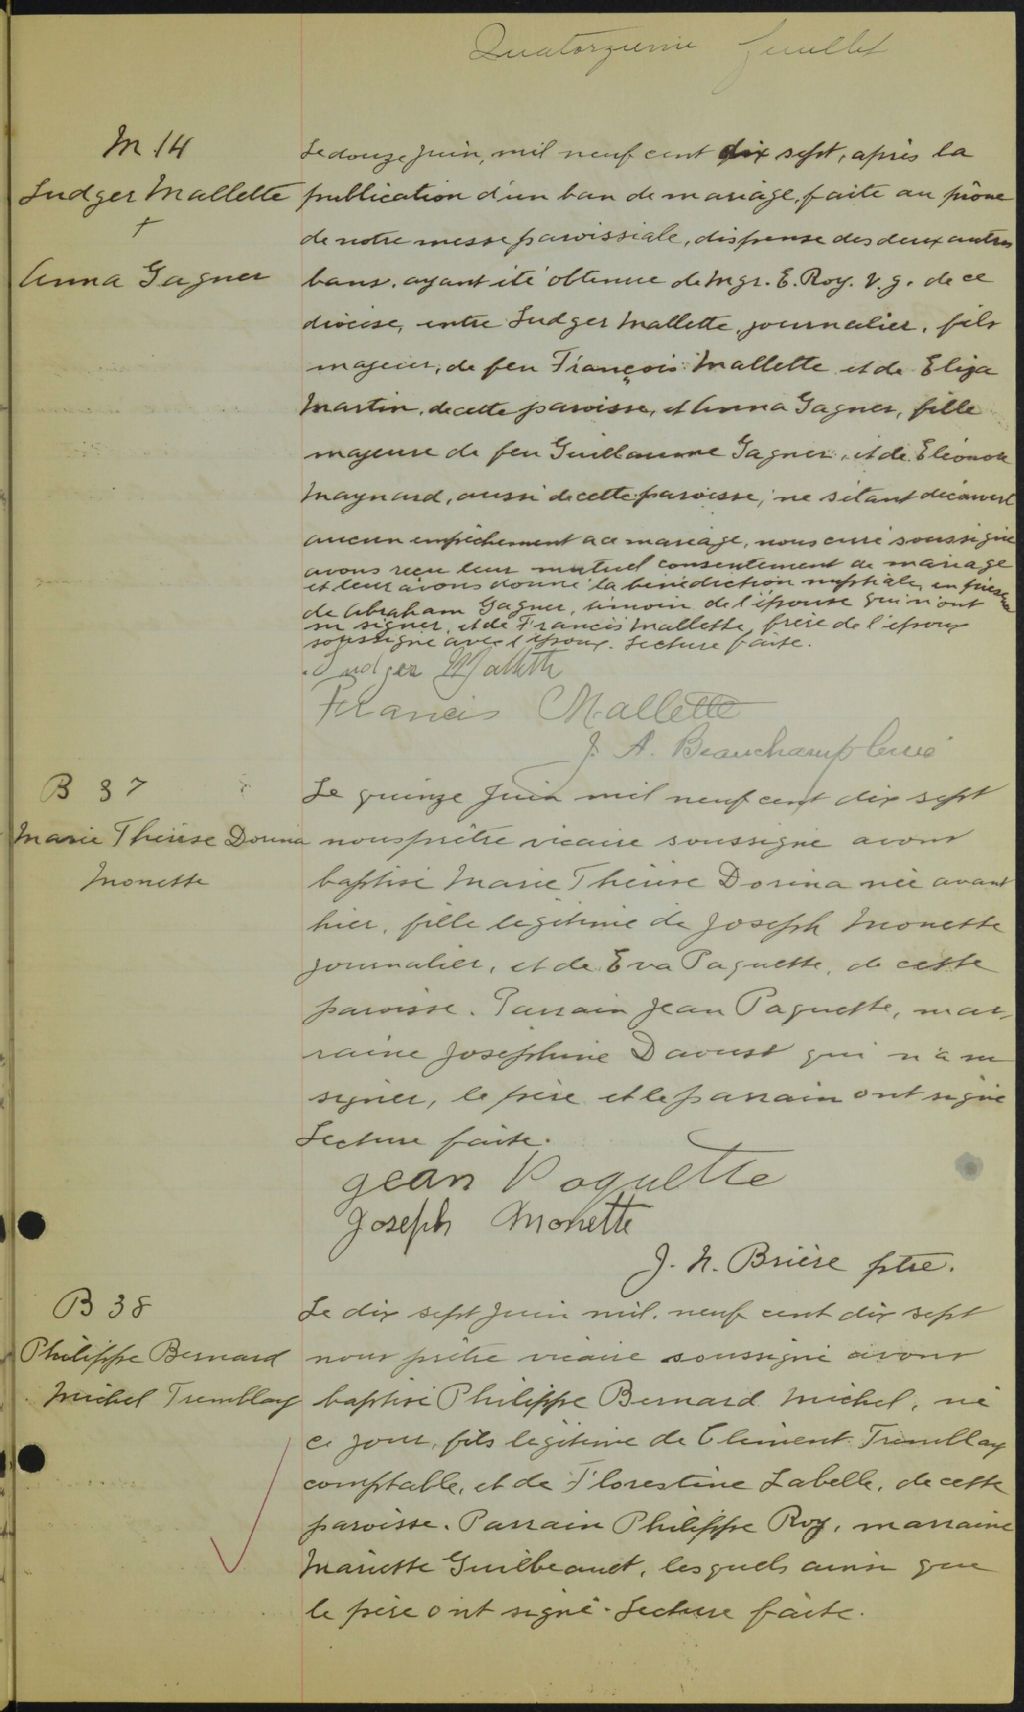 Quatorzieme feuillet
M. 14
Ludger Mallette
+
Anna Gagner
Le douze juin, mil neuf cent dix sept, après la
publication d'un ban de mariage, faite au prône
de notre messe paroissiale, dispense des deux autres
bans, ayant été obtenue de Mgr. E. Roy. V.g. de ce
diocèse, entre Ludger Mallette, journalier, fils
majeur, de feu François Mallette et de Eliza
Martin, de cette paroisse, et Anna Gagner, fille
majeure de feu Guillaume Gagner, et de Eléonore
Maynard, aussi de cette paroisse, ne s'étant découvert
aucun empêchement à ce mariage, nous curé soussigné
avons reçu leur mutuel consentement de mariage
et leur avons donné la bénédiction nuptiale, en présence
de Abraham Gagner, témoin de l'épouse qui n'ont
su signer, et de Francis Mallette, frère de l'époux
soussigné avec l'époux. Lecture faite.
Ludger Mallette
Francis Mallette
J. A. Beauchamp Curé
B 37
Marie Thérèse Dorina
Monette
Le quinze juin mil neuf cent dix sept
nous prêtre vicaire soussigné avons
baptisé Marie Thérèse Dorina née avant
hier, fille légitime de Joseph Monette
journalier, et de Eva Paquette, de cette
paroisse. Parrain Jean Paquette, mar-
raine Joséphine Daoust qui n'a su
signer, le père et le parrain ont signé
Lecture faite.
Jean Paquette
Joseph Monette
J. N. Brière ptre.
B 38
Philippe Bernard
Michel Tremblay
Le dix sept juin mil. neuf cent dix sept
nous prêtre vicaire soussigné avons
baptisé Philippe Bernard Michel, né
ce jour, fils légitime de Clément Tremblay
comptable, et de Florestine Labelle, de cette
paroisse. Parrain Philippe Roy, marraine
Mariette Guilbeault, lesquels ainsi que
le père ont signé. Lecture faite.